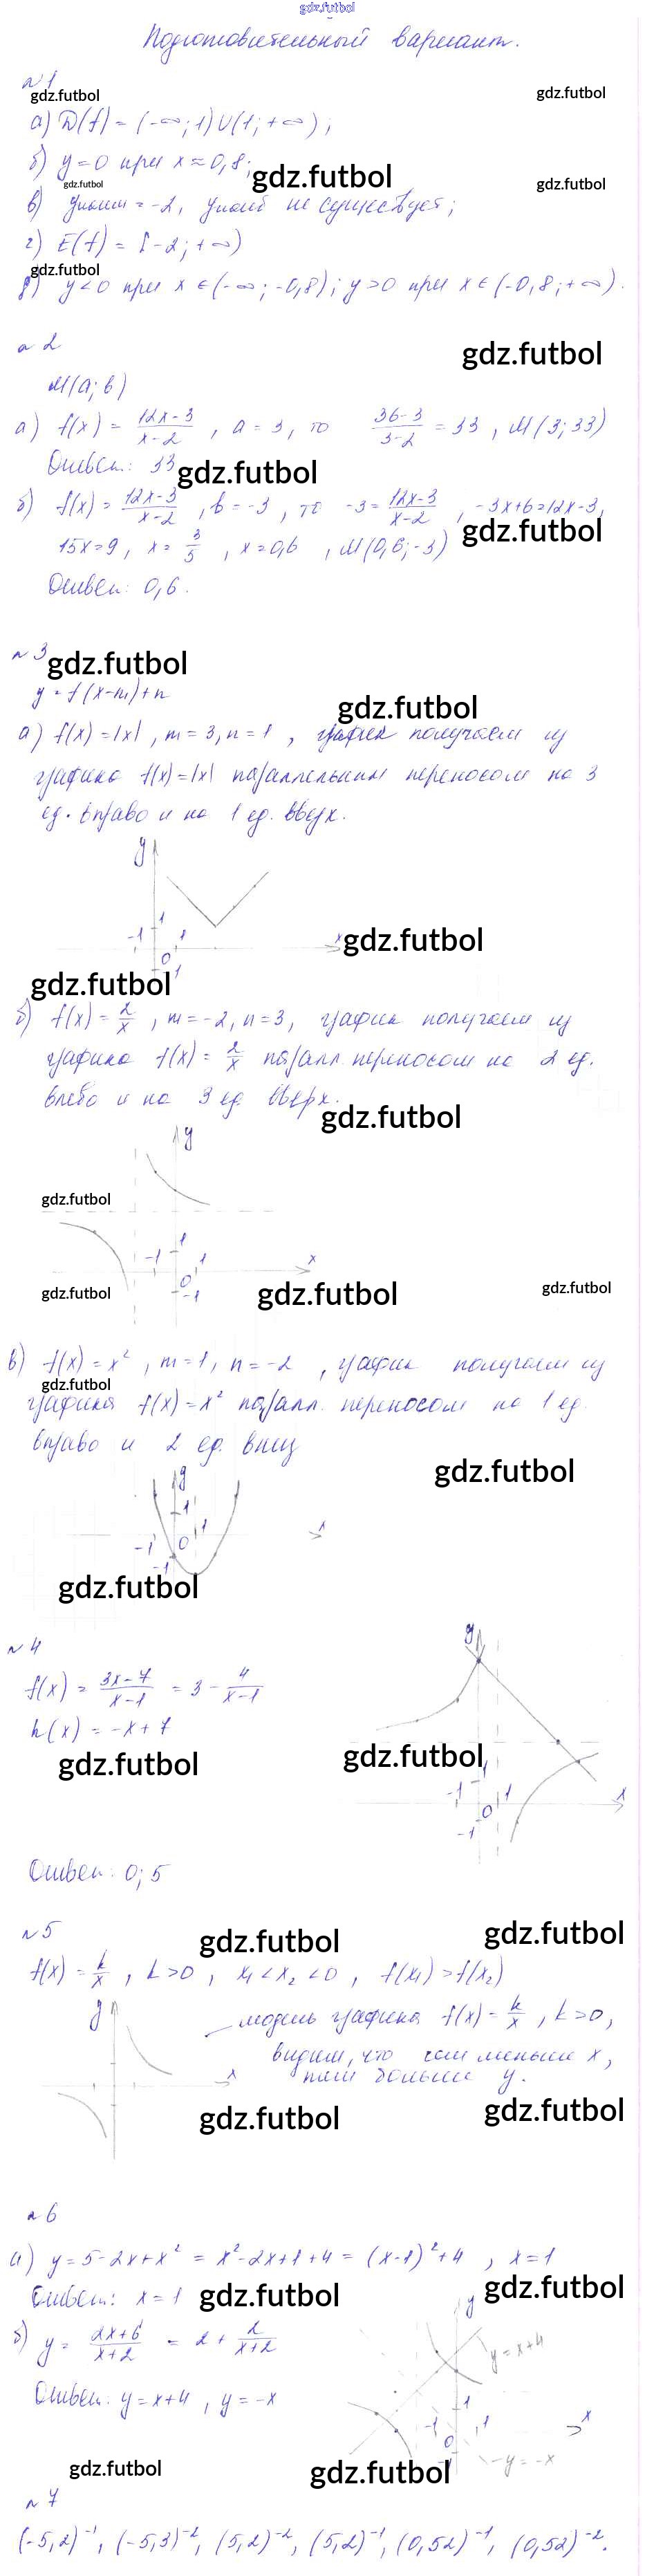 gdz.futbol
Подготовительный вариант.
n 1
gdz.futbol
gdz.futbol
а) D(f) = (-∞; 1) ∪ (1; +∞);
б) y = 0 при x ≈ 0,8;
gdz.futbol
gdz.futbol
gdz.futbol
в) yнаим = -2, yнаиб не существует;
г) E(f) = [-2; +∞)
gdz.futbol
д) y < 0 при x ∈ (-∞; -0,8); y > 0 при x ∈ (-0,8; +∞).
n 2
gdz.futbol
M(a; b)
а) f(x) = (12x-3)/(x-2), a = 3, то (36-3)/(3-2) = 33, M(3; 33)
Ответ: 33
gdz.futbol
б) f(x) = (12x-3)/(x-2), b = -3, то -3 = (12x-3)/(x-2), -3x+6=12x-3,
gdz.futbol
15x = 9, x = 3/5, x = 0,6, M(0,6; -3)
Ответ: 0,6.
n 3
gdz.futbol
y = f(x-m)+n
gdz.futbol
а) f(x) = |x|, m = 3, n = 1, график получаем из
графика f(x) = |x| параллельным переносом на 3
ед. вправо и на 1 ед. вверх.
y
1
-1
1
x
0
-1
gdz.futbol
gdz.futbol
б) f(x) = 2/x, m = -2, n = 3, график получаем из
графика f(x) = 2/x паралл. переносом на 2 ед.
влево и на 3 ед вверх.
gdz.futbol
y
gdz.futbol
1
-1
1
x
0
-1
gdz.futbol
gdz.futbol
gdz.futbol
в) f(x) = x², m = 1, n = -2, график получаем из
gdz.futbol
графика f(x) = x² паралл. переносом на 1 ед.
вправо и 2 ед. вниз
gdz.futbol
y
1
1
x
-1
0
-1
gdz.futbol
n 4
f(x) = (3x-7)/(x-1) = 3 - 4/(x-1)
h(x) = -x + 7
gdz.futbol
y
gdz.futbol
1
-1
1
x
0
-1
Ответ: 0; 5
n 5
gdz.futbol
gdz.futbol
f(x) = k/x, k > 0, x₁ < x₂ < 0, f(x₁) > f(x₂)
y
x
модель графика f(x) = k/x, k > 0,
видим, что чем меньше x,
тем больше y.
gdz.futbol
gdz.futbol
n 6
а) y = 5 - 2x + x² = x² - 2x + 1 + 4 = (x-1)² + 4, x = 1
Ответ: x = 1
gdz.futbol
gdz.futbol
б) y = (2x+6)/(x+2) = 2 + 2/(x+2)
Ответ: y = x + 4, y = -x
y
y = x+4
1
-1
1
x
0
y = -x
gdz.futbol
gdz.futbol
n 7
(-5,2)⁻¹, (-5,3)⁻², (5,2)⁻², (5,2)⁻¹, (0,52)⁻¹, (0,52)⁻².